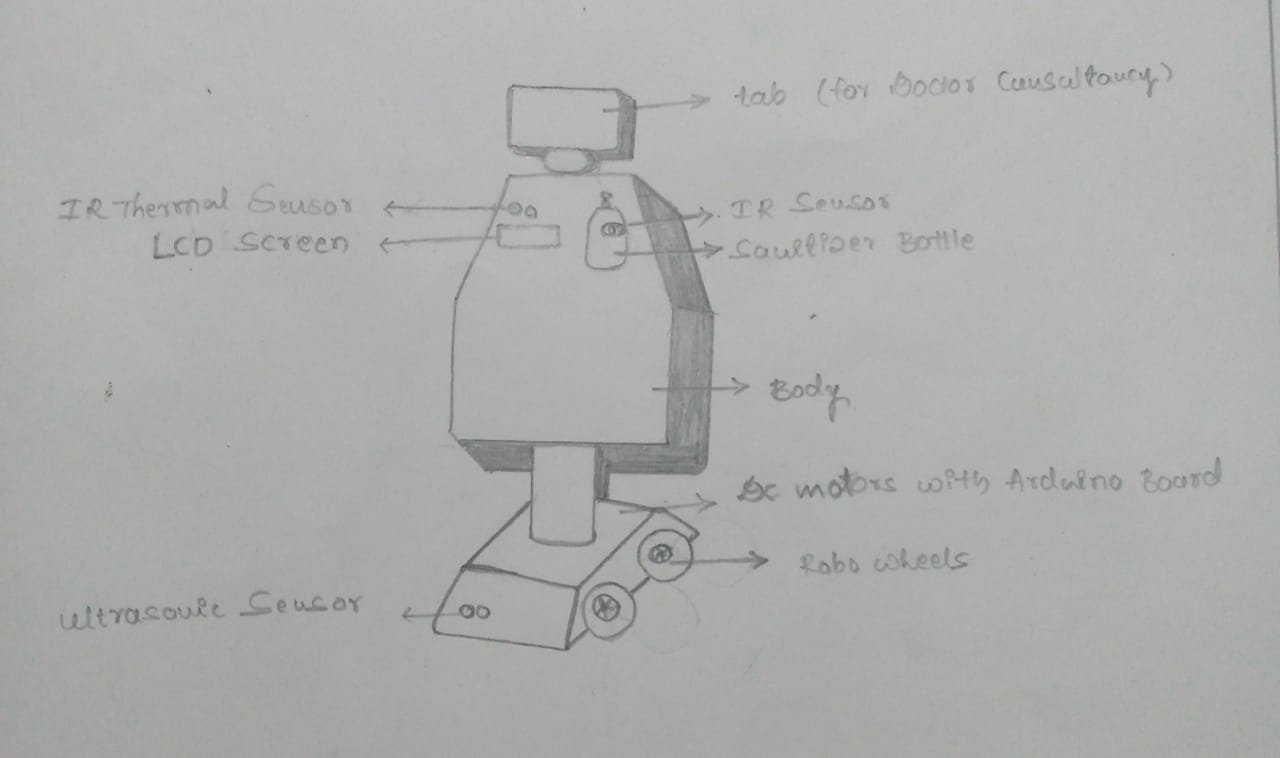 tab (for Doctor Consultancy)
IR Thermal Sensor
IR Sensor
LCD Screen
Sanitizer Bottle
Body
DC motors with Arduino Board
Robo wheels
Ultrasonic Sensor